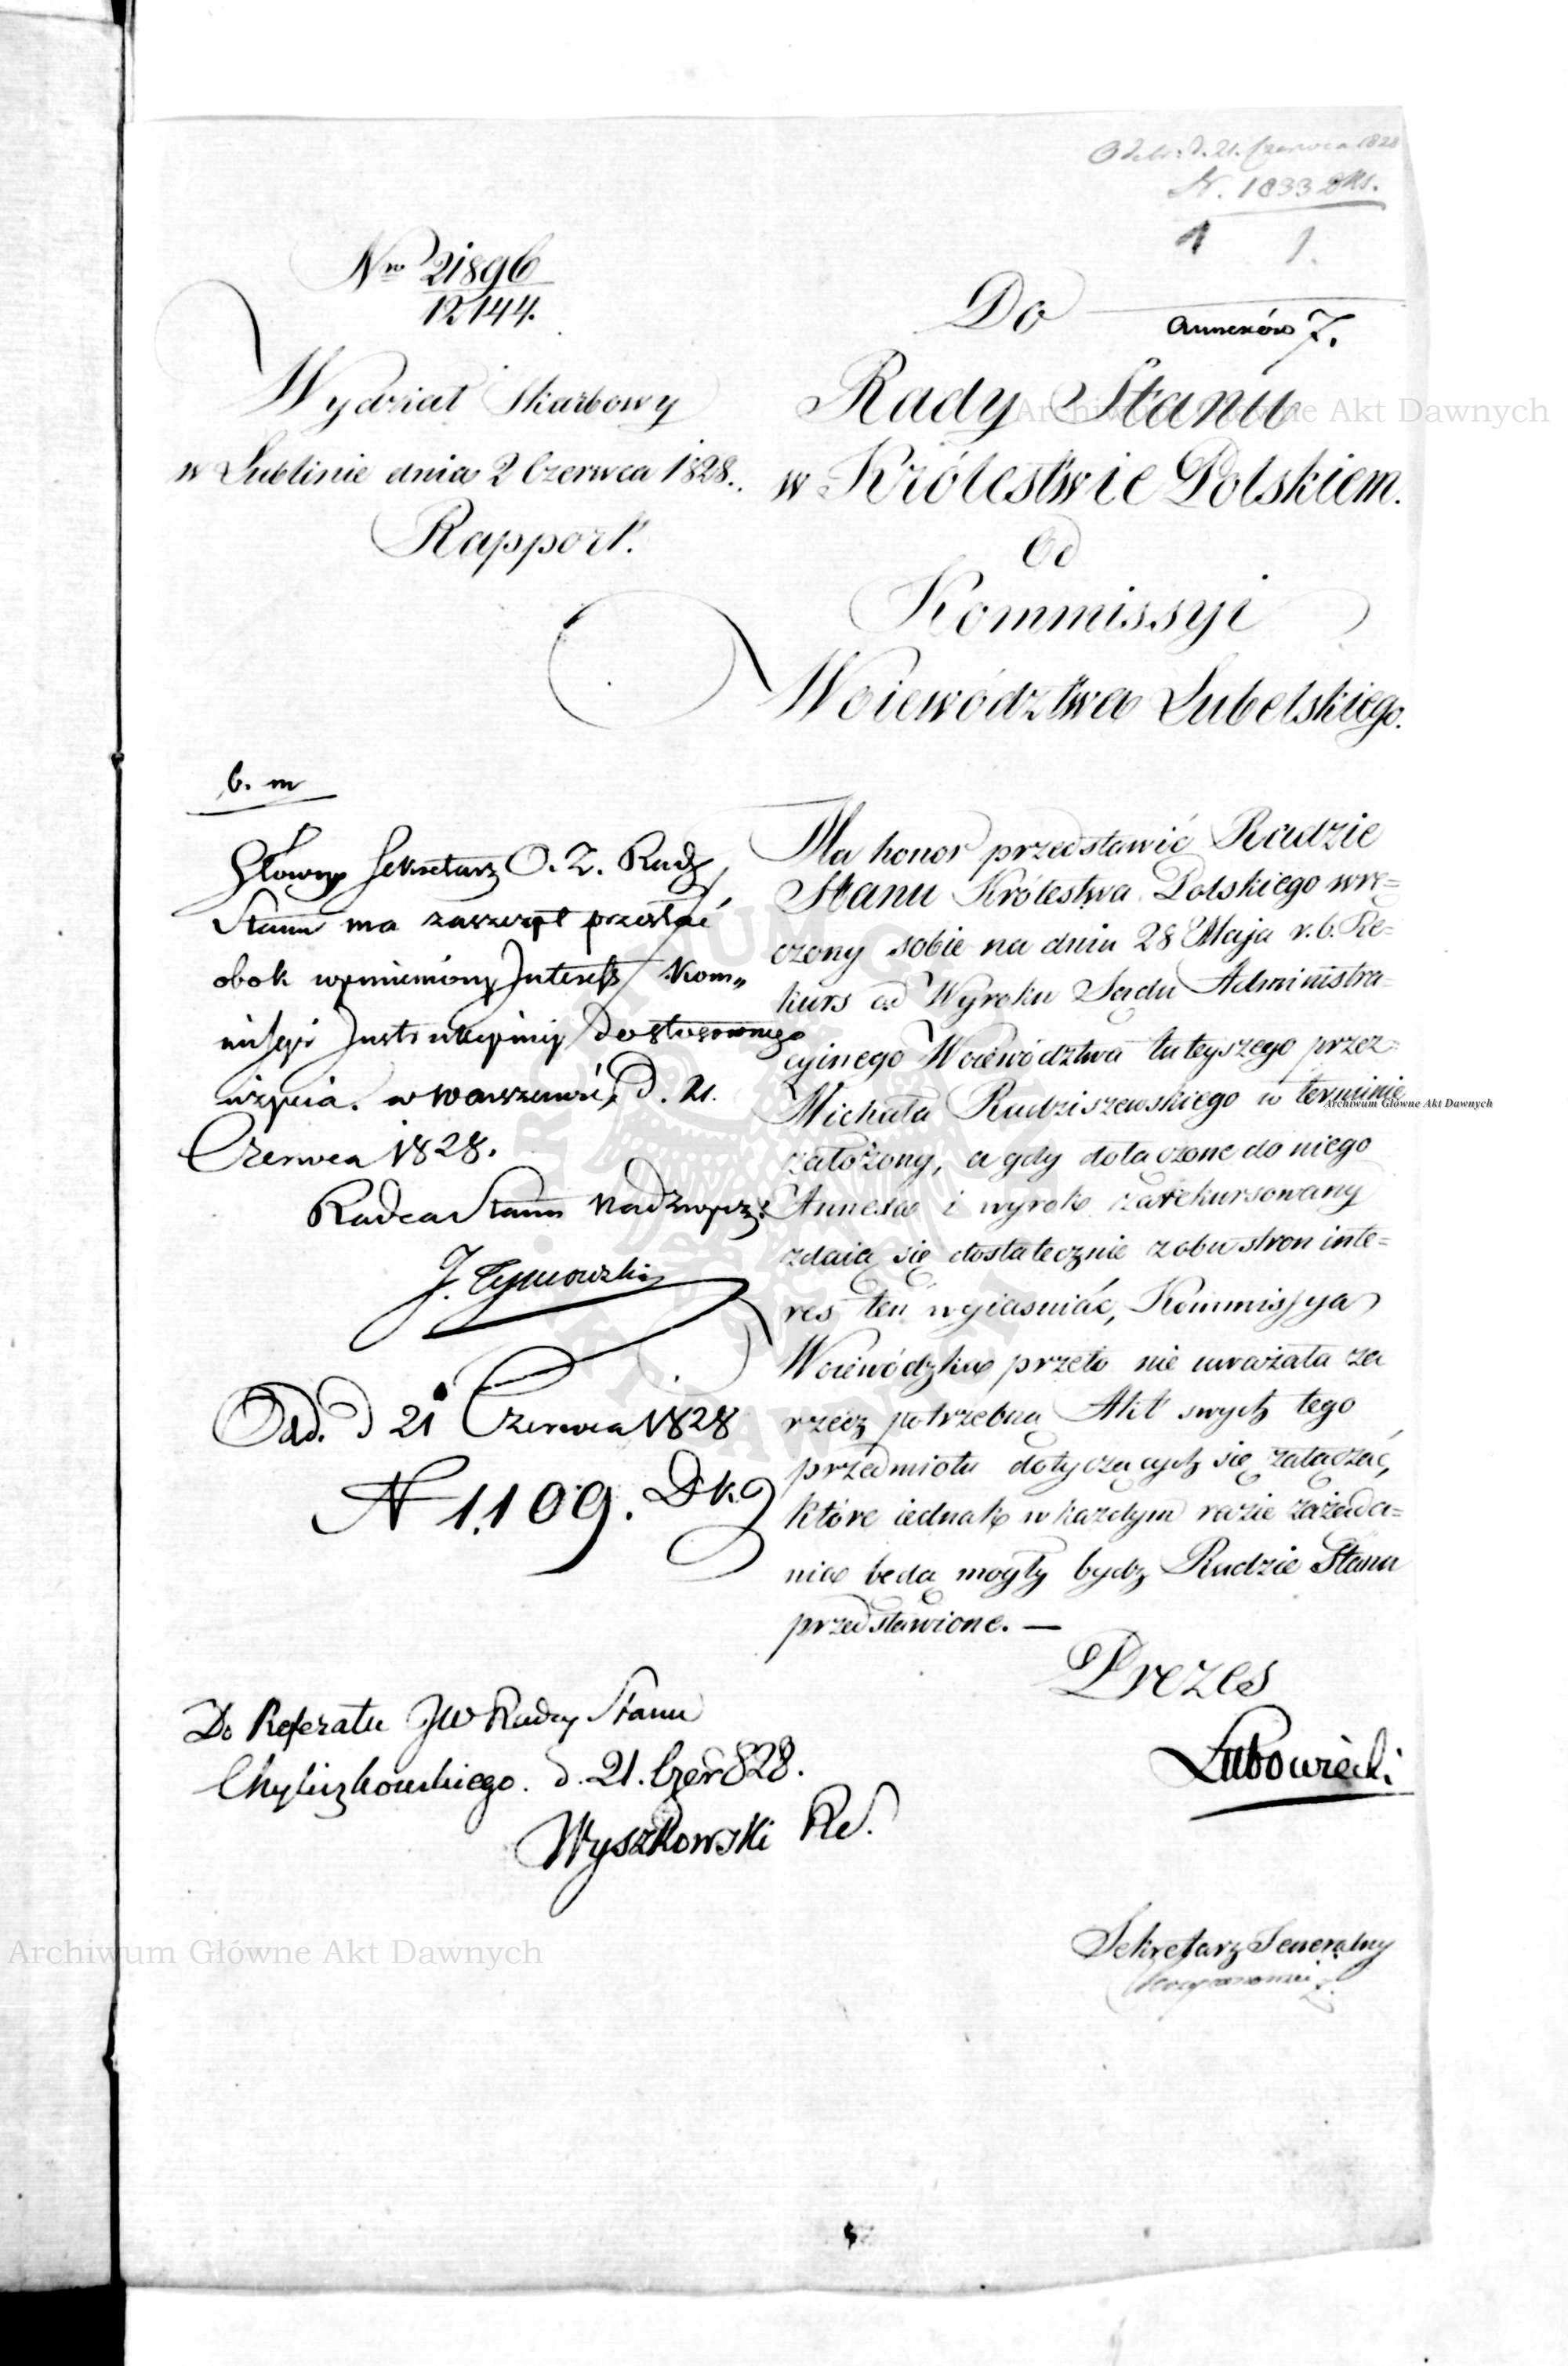 Odebr. d. 21. Czerwca 1828
N. 1833 DKs.
1 1.
Nro 21896
12144.
Wydział Skarbowy
w Lublinie dnia 2 Czerwca 1828.
Rapport.
Do
Annexów 7.
Rady Stanu
w Królestwie Polskiem.
Od
Kommissyi
Woiewództwa Lubelskiego.
b. m
Główny Sekretarz O. Z. Rady
Stanu ma zaszczyt przesłać
obok wymieniony Interess Kom„
missyi Instrukcyiney dostosownego
użycia. w Warszawie, d. 21.
Czerwca 1828.
Radca Stanu Nadzwycz:
J. Tymowski
Odd. d 21 Czerwca 1828
N 1,109. Dk.
Do Referatu JW Radcy Stanu
Chyliczkowskiego. d. 21. Czer 828.
Wyszkowski
Ma honor przedstawić Radzie
Stanu Królestwa Polskiego wrę=
czony sobie na dniu 28 Maja r. b. Re=
kurs od Wyroku Sądu Administra=
cyinego Woiewództwa tuteyszego przez
Michała Radziszewskiego w terminie
założony, a gdy dołączone do niego
Annexa i wyrok zarekursowany
zdaią się dostatecznie z obu stron inte=
res ten wyiaśniać, Kommissya
Woiewódzka przeto nie uważała za
rzecz potrzebną Akt swych tego
przedmiotu dotyczących się załączać,
które iednak w każdym razie zażąda=
nia będą mogły bydz Radzie Stanu
przedstawione. —
Prezes
Lubowiecki
Sekretarz Jeneralny
Archiwum Główne Akt Dawnych
Archiwum Główne Akt Dawnych
Archiwum Główne Akt Dawnych
ARCHIWUM GŁÓWNE AKT DAWNYCH